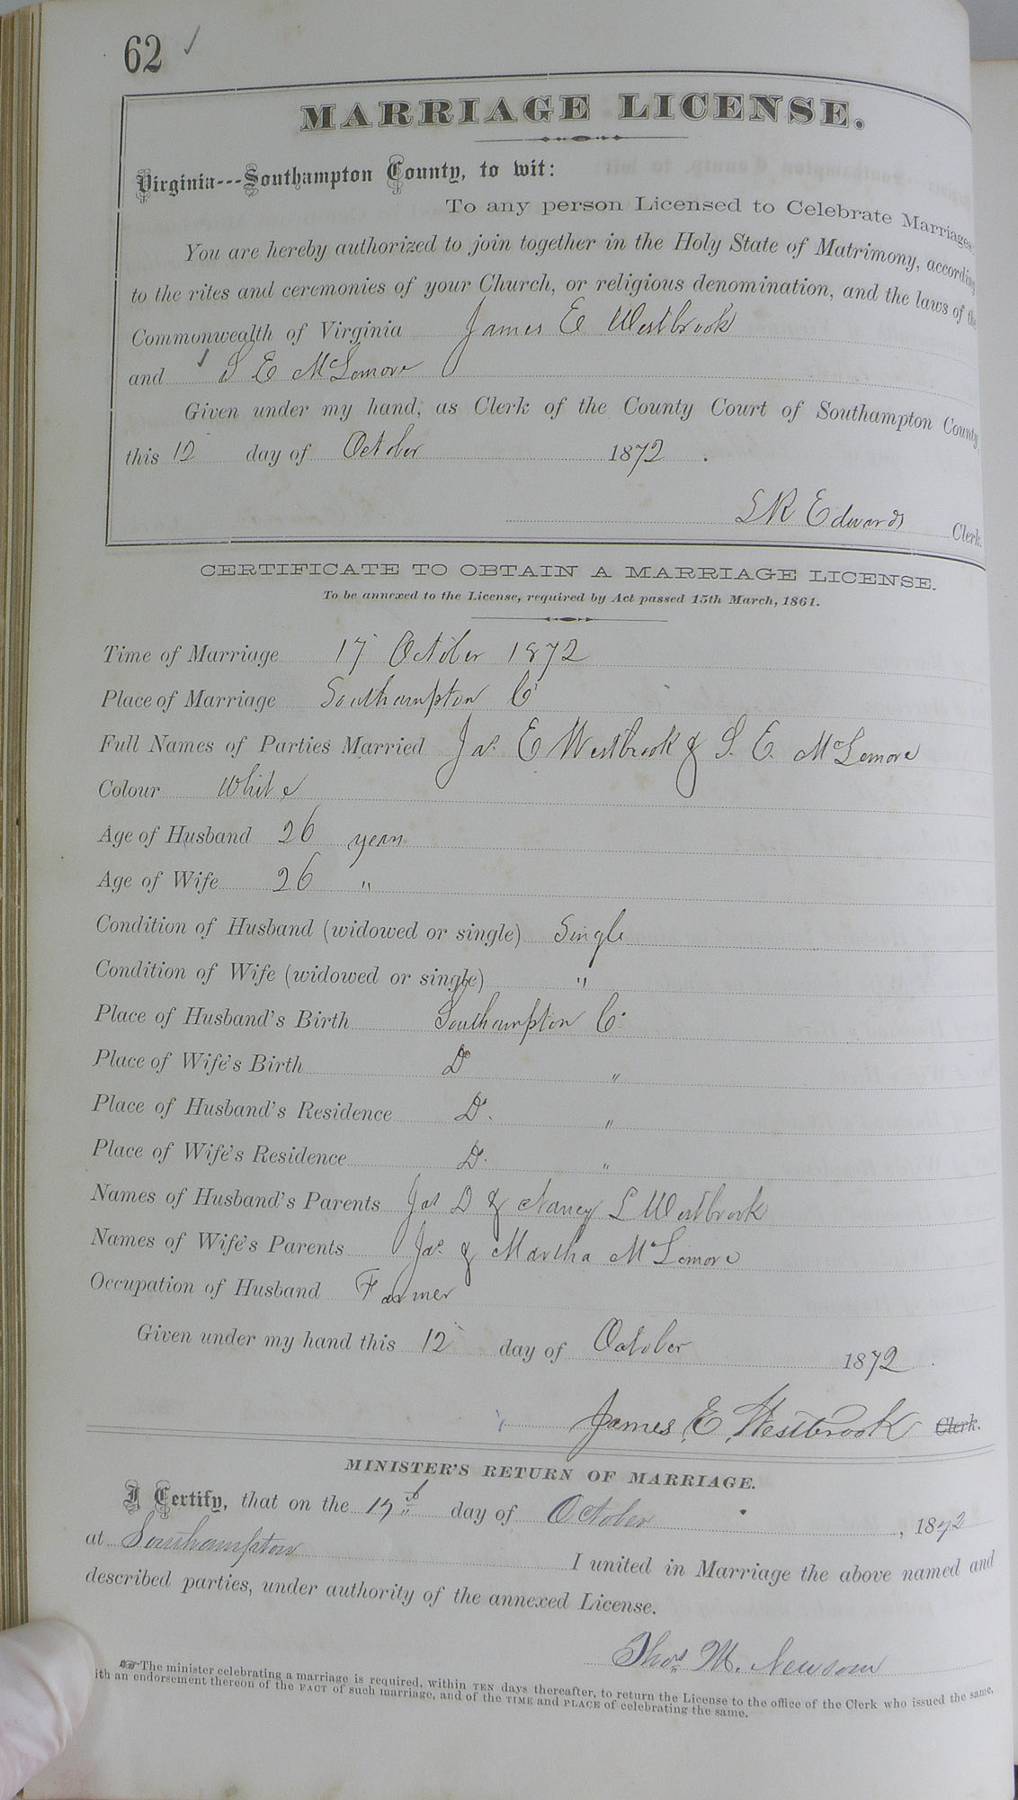 62 ✓
MARRIAGE LICENSE.
Virginia---Southampton County, to wit:
To any person Licensed to Celebrate Marriages:
You are hereby authorized to join together in the Holy State of Matrimony, according
to the rites and ceremonies of your Church, or religious denomination, and the laws of the
Commonwealth of Virginia James E Westbrook
and S E McLemore
Given under my hand, as Clerk of the County Court of Southampton County
this 12 day of October 1872.
L R Edwards Clerk.
CERTIFICATE TO OBTAIN A MARRIAGE LICENSE.
To be annexed to the License, required by Act passed 15th March, 1861.
Time of Marriage 17 October 1872
Place of Marriage Southampton Co
Full Names of Parties Married Jas. E Westbrook & S. E. McLemore
Colour White
Age of Husband 26 years
Age of Wife 26 "
Condition of Husband (widowed or single) Single
Condition of Wife (widowed or single) "
Place of Husband's Birth Southampton Co
Place of Wife's Birth Do "
Place of Husband's Residence Do. "
Place of Wife's Residence Do. "
Names of Husband's Parents Jas D & Nancy L Westbrook
Names of Wife's Parents Jas. & Martha McLemore
Occupation of Husband Farmer
Given under my hand this 12 day of October 1872.
James E. Westbrook Clerk.
MINISTER'S RETURN OF MARRIAGE.
I Certify, that on the 17th day of October, 1872
at Southampton I united in Marriage the above named and
described parties, under authority of the annexed License.
Thos. M. Newsom
☞ The minister celebrating a marriage is required, within TEN days thereafter, to return the License to the office of the Clerk who issued the same,
with an endorsement thereon of the FACT of such marriage, and of the TIME and PLACE of celebrating the same.